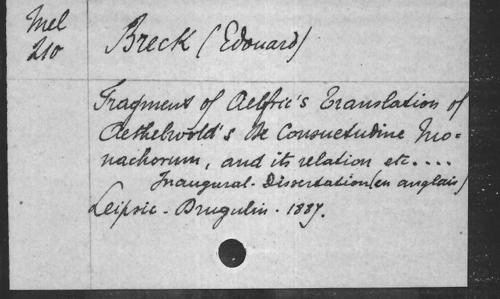 Mel
210
Breck (Edouard)
Fragment of Aelfric's Translation of
Aethelwold's De Consuetudine Mo-
nachorum, and its relation etc....
Inaugural-Dissertation (en anglais)
Leipsic - Drugulin - 1887.